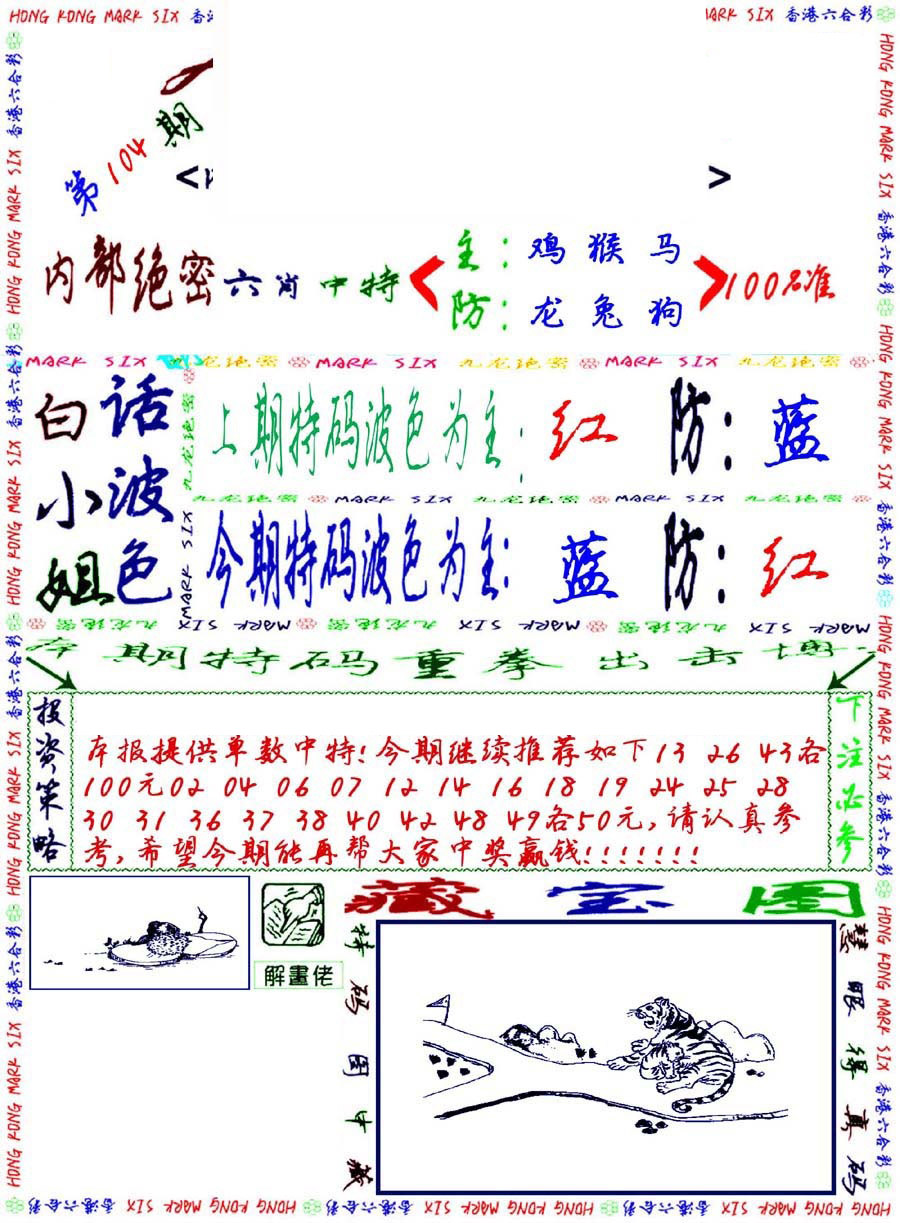 HONG KONG MARK SIX 香港
MARK SIX 香港六合彩
第104期
内部绝密六肖中特
主：鸡猴马
防：龙兔狗
100%准
MARK SIX 九龙绝密 MARK SIX 九龙绝密 MARK SIX 九龙绝密
白小姐
话波色
上期特码波色为主：红 防：蓝
九龙绝密 MARK SIX 九龙绝密 MARK SIX 九龙绝密
今期特码波色为主：蓝 防：红
MARK SIX 九龙绝密 MARK SIX 九龙绝密 MARK SIX 九龙绝密
本期特码重拳出击博
投资策略
本报提供单数中特!今期继续推荐如下13 26 43各
100元02 04 06 07 12 14 16 18 19 24 25 28
30 31 36 37 38 40 42 48 49各50元,请认真参
考,希望今期能再帮大家中奖赢钱!!!!!!!
下注必参
解畫佬
藏宝图
特码图中藏
慧眼得真码
HONG KONG MARK SIX 香港六合彩